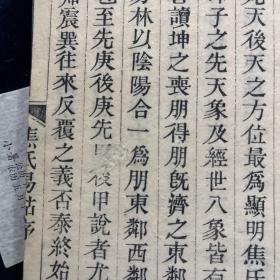 先天後天之方位最為顯明焦
子之先天象及經世八象皆有
者讀坤之喪朋得朋旣濟之東鄰
易林以陰陽合一爲朋東鄰西鄰
也至先庚後庚先甲後甲說者尤
歸震巽往來反覆之義否泰終始
焦氏易詁序